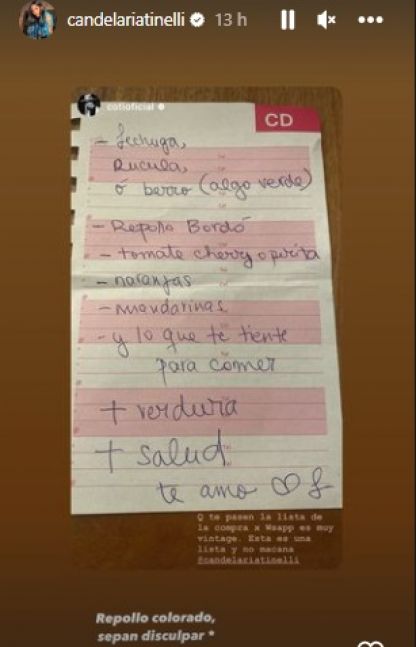 candelariatinelli 13 h
cotioficial
CD
- Lechuga,
Rucula,
ó berro (algo verde)
- Repollo Bordó
- tomate cherry o perita
- naranjas
- mandarinas
- y lo que te tiente
para comer
+ verdura
+ salud
te amo ♡
Q te pasen la lista de
la compra x Wsapp es muy
vintage. Esta es una
lista y no macana
@candelariatinelli
Repollo colorado,
sepan disculpar *